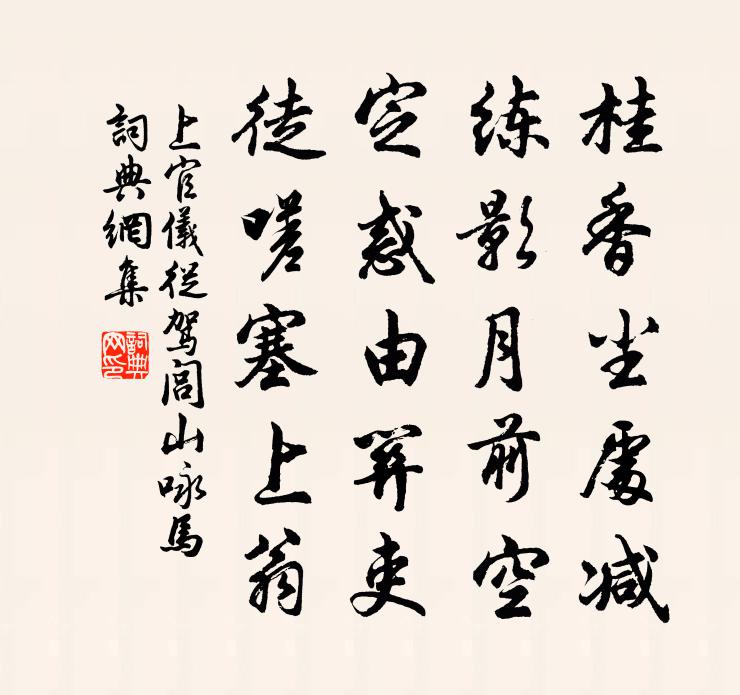 桂香尘處减
练影月前空
定惑由關吏
徒嗟塞上翁
上官儀從駕閭山咏馬
詞典網集
詞典网印